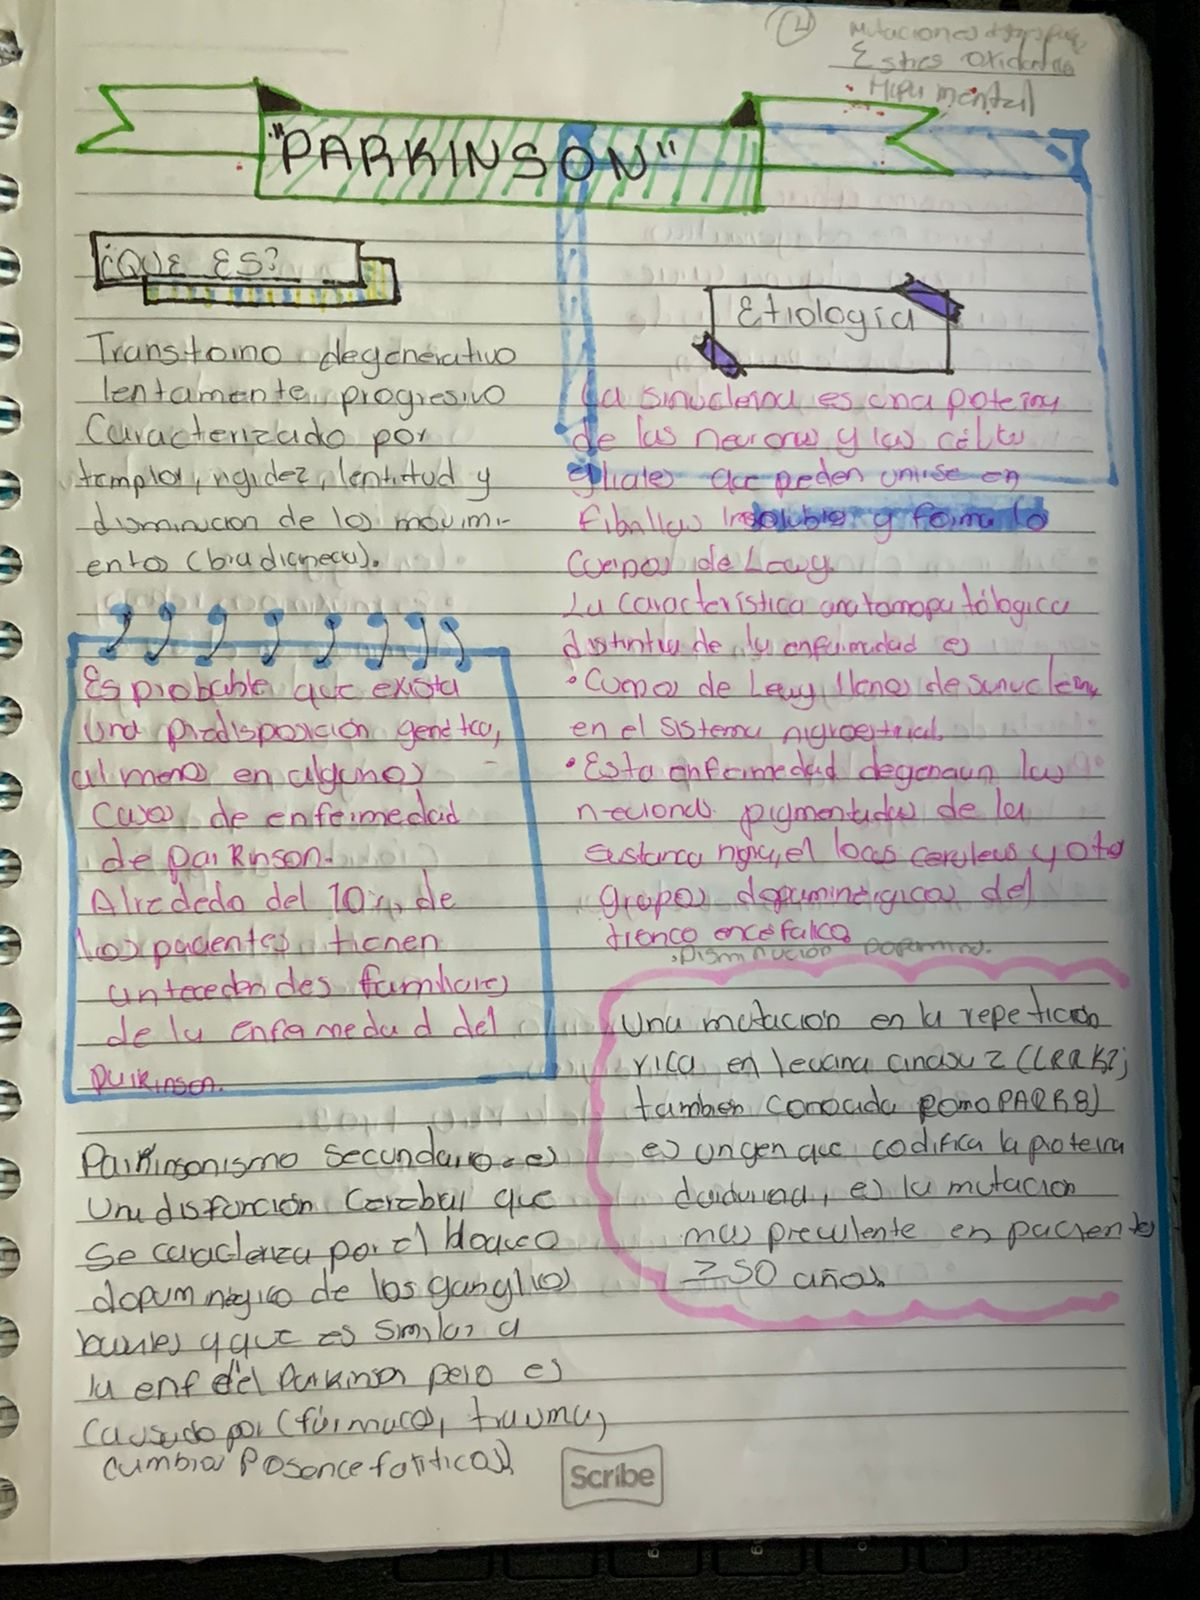 4
Mutaciones
Estres Oxidativo
"PARKINSON"
¿QUE ES?
Transtorno degenerativo
lentamente progresivo
Caracterizado por
templor, rigidez, lentitud y
disminucion de los movimi-
entos (bradicinecia).
Es probable que exista
una predisposición genetica,
al menos en algunos
casos de enfermedad
de parkinson.
Alrededo del 10% de
los pacientes tienen
antecedendes familiares
de la enfermedad del
parkinson.
Parkinsonismo Secundario = es
Una disfunción Cerebral que
Se caracteriza por el bloqueo
dopaminégico de los ganglios
basales y que es similar a
la enf del Parkinson pero es
Causado por (fármacos, trauma,
cumbia Posencefaliticas)
Etiología
La sinucleina es una proteina
de las neuronas y las célts
gliales que peden unirse en
Fibrillas Insolubles y forma lo
Cuerpos de Lewy.
La característica anatomopatológica
distintiva de la enfermedad es
• Cuerpos de Lewy llenos de sinucleina
en el sistema nigroestrial.
• Esta enfermedad degeneran las
neuronas pigmentadas de la
Sustancia nigra, el locus ceruleus y otro
grupos dopaminérgicos del
tronco encefálico
Disminucion Dopamina.
Una mutación en la repetición
rica en leucina cinasa 2 (LRRK2;
tambien conocida como PARK8)
es un gen que codifica la proteina
dardarina, es la mutacion
mas prevalente en paciente
≥ 50 años.
Scribe